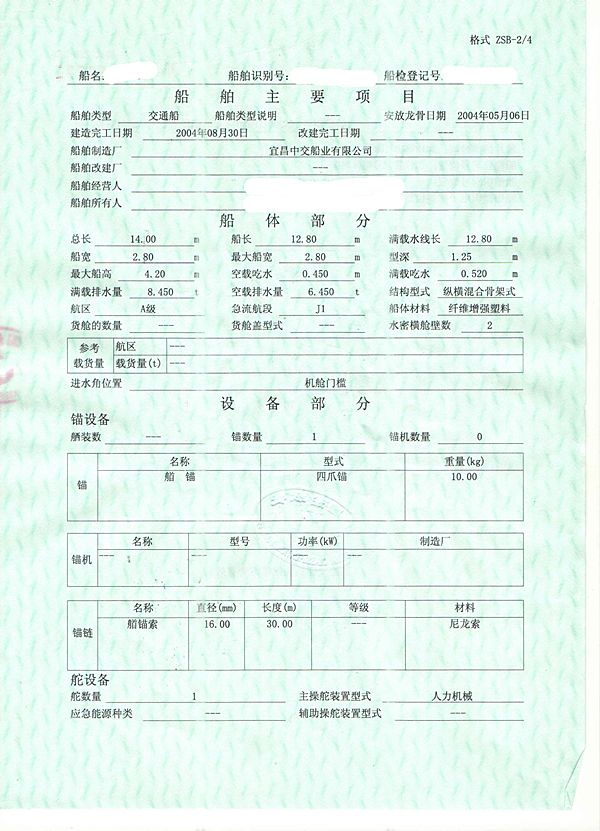 格式 ZSB-2/4
船名: 船舶识别号: 船检登记号
船 舶 主 要 项 目
船舶类型 交通船 船舶类型说明 --- 安放龙骨日期 2004年05月06日
建造完工日期 2004年08月30日 改建完工日期 ---
船舶制造厂 宜昌中交船业有限公司
船舶改建厂 ---
船舶经营人
船舶所有人
船 体 部 分
总长 14.00 m 船长 12.80 m 满载水线长 12.80 m
船宽 2.80 m 最大船宽 2.80 m 型深 1.25 m
最大船高 4.20 m 空载吃水 0.450 m 满载吃水 0.520 m
满载排水量 8.450 t 空载排水量 6.450 t 结构型式 纵横混合骨架式
航区 A级 急流航段 J1 船体材料 纤维增强塑料
货舱的数量 --- 货舱盖型式 --- 水密横舱壁数 2
参考 航区 ---
载货量 载货量(t) ---
进水角位置 机舱门槛
设 备 部 分
锚设备
舾装数 --- 锚数量 1 锚机数量 0
名称 型式 重量(kg)
锚 艏 锚 四爪锚 10.00
名称 型号 功率(kW) 制造厂
锚机 --- --- --- ---
名称 直径(mm) 长度(m) 等级 材料
锚链 艏锚索 16.00 30.00 --- 尼龙索
舵设备
舵数量 1 主操舵装置型式 人力机械
应急能源种类 --- 辅助操舵装置型式 ---